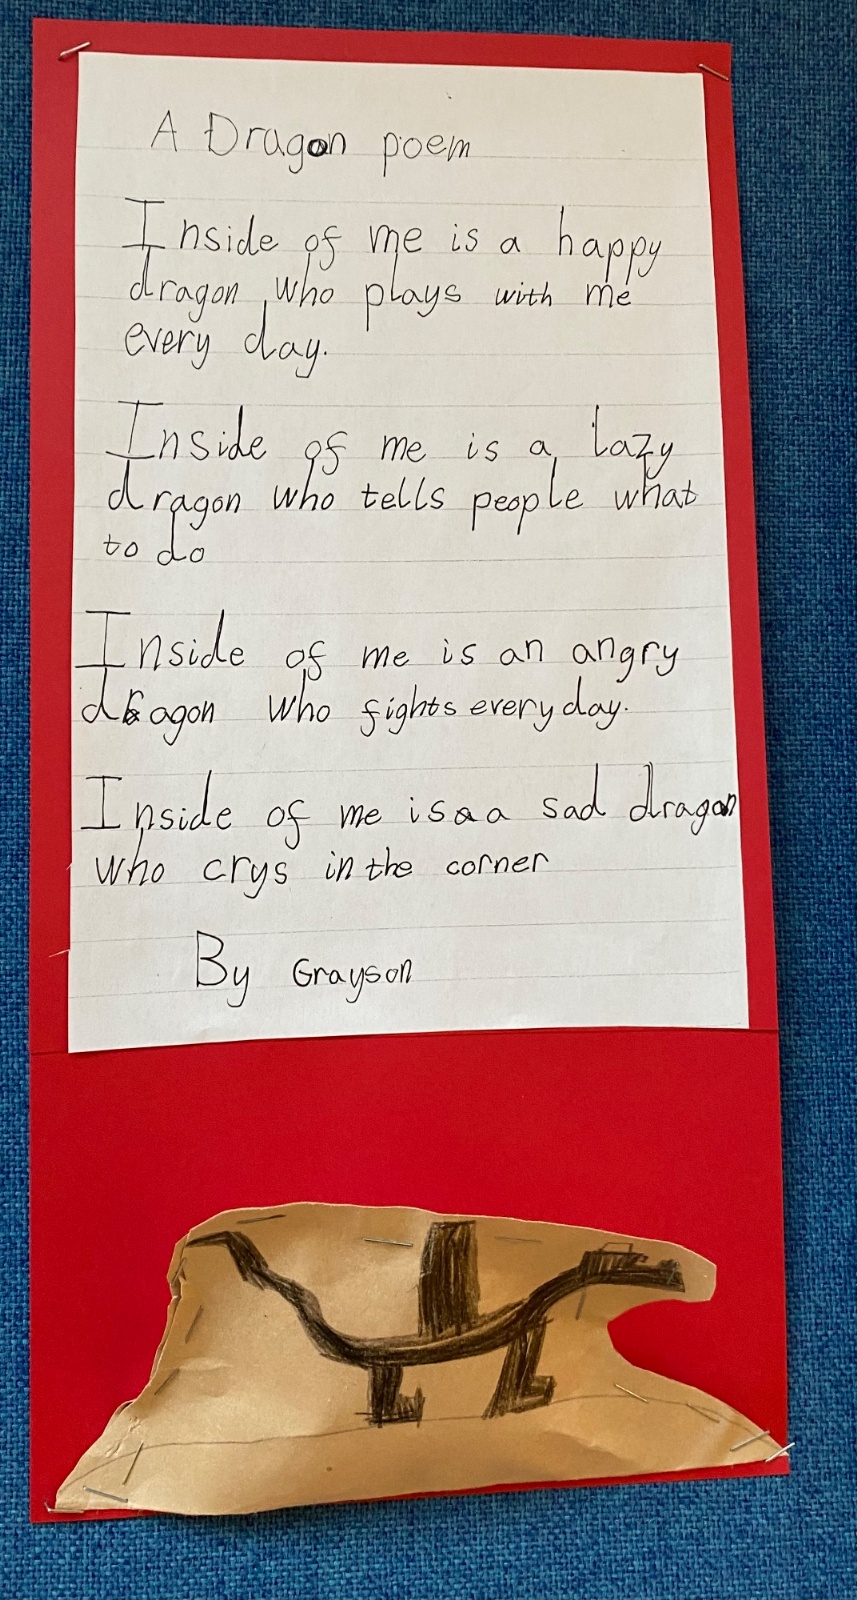 A Dragon poem
Inside of me is a happy
dragon who plays with me
every day.
Inside of me is a lazy
dragon who tells people what
to do
Inside of me is an angry
dragon who fights every day.
Inside of me is a a sad dragon
who crys in the corner
By Grayson